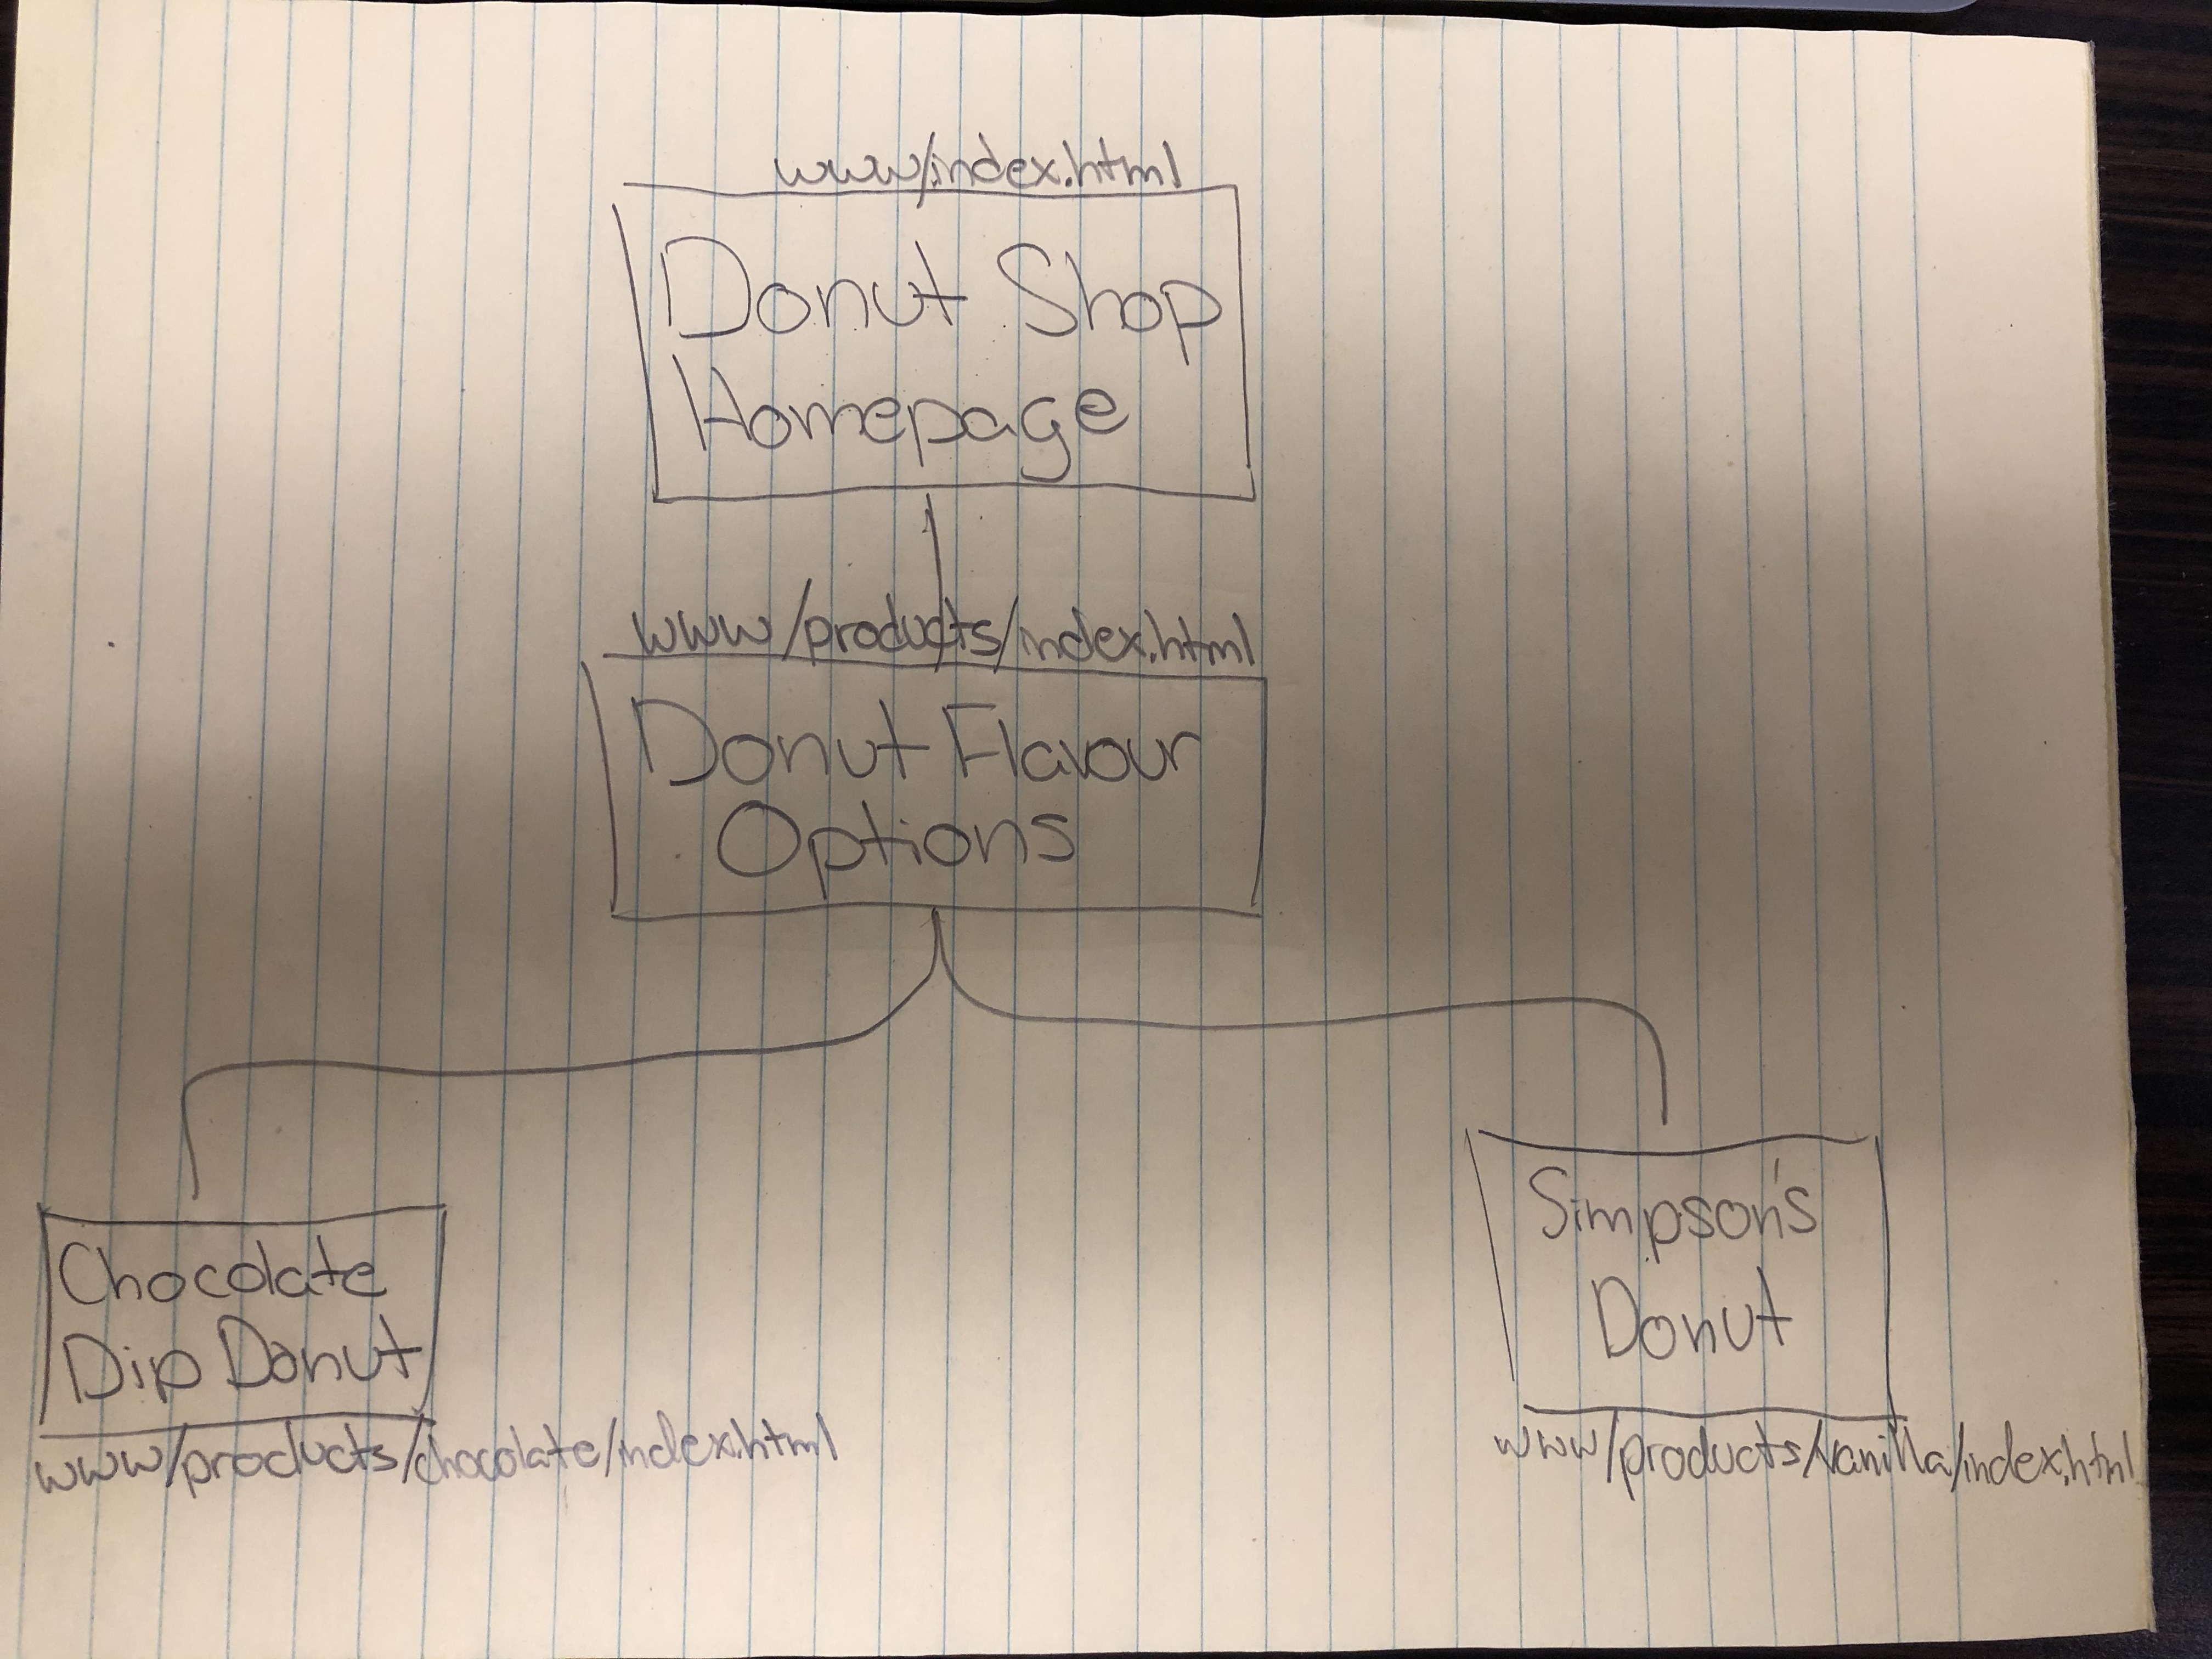 www/index.html
Donut Shop
Homepage
www/products/index.html
Donut Flavour
Options
Chocolate
Dip Donut
www/products/chocolate/index.html
Simpson's
Donut
www/products/vanilla/index.html